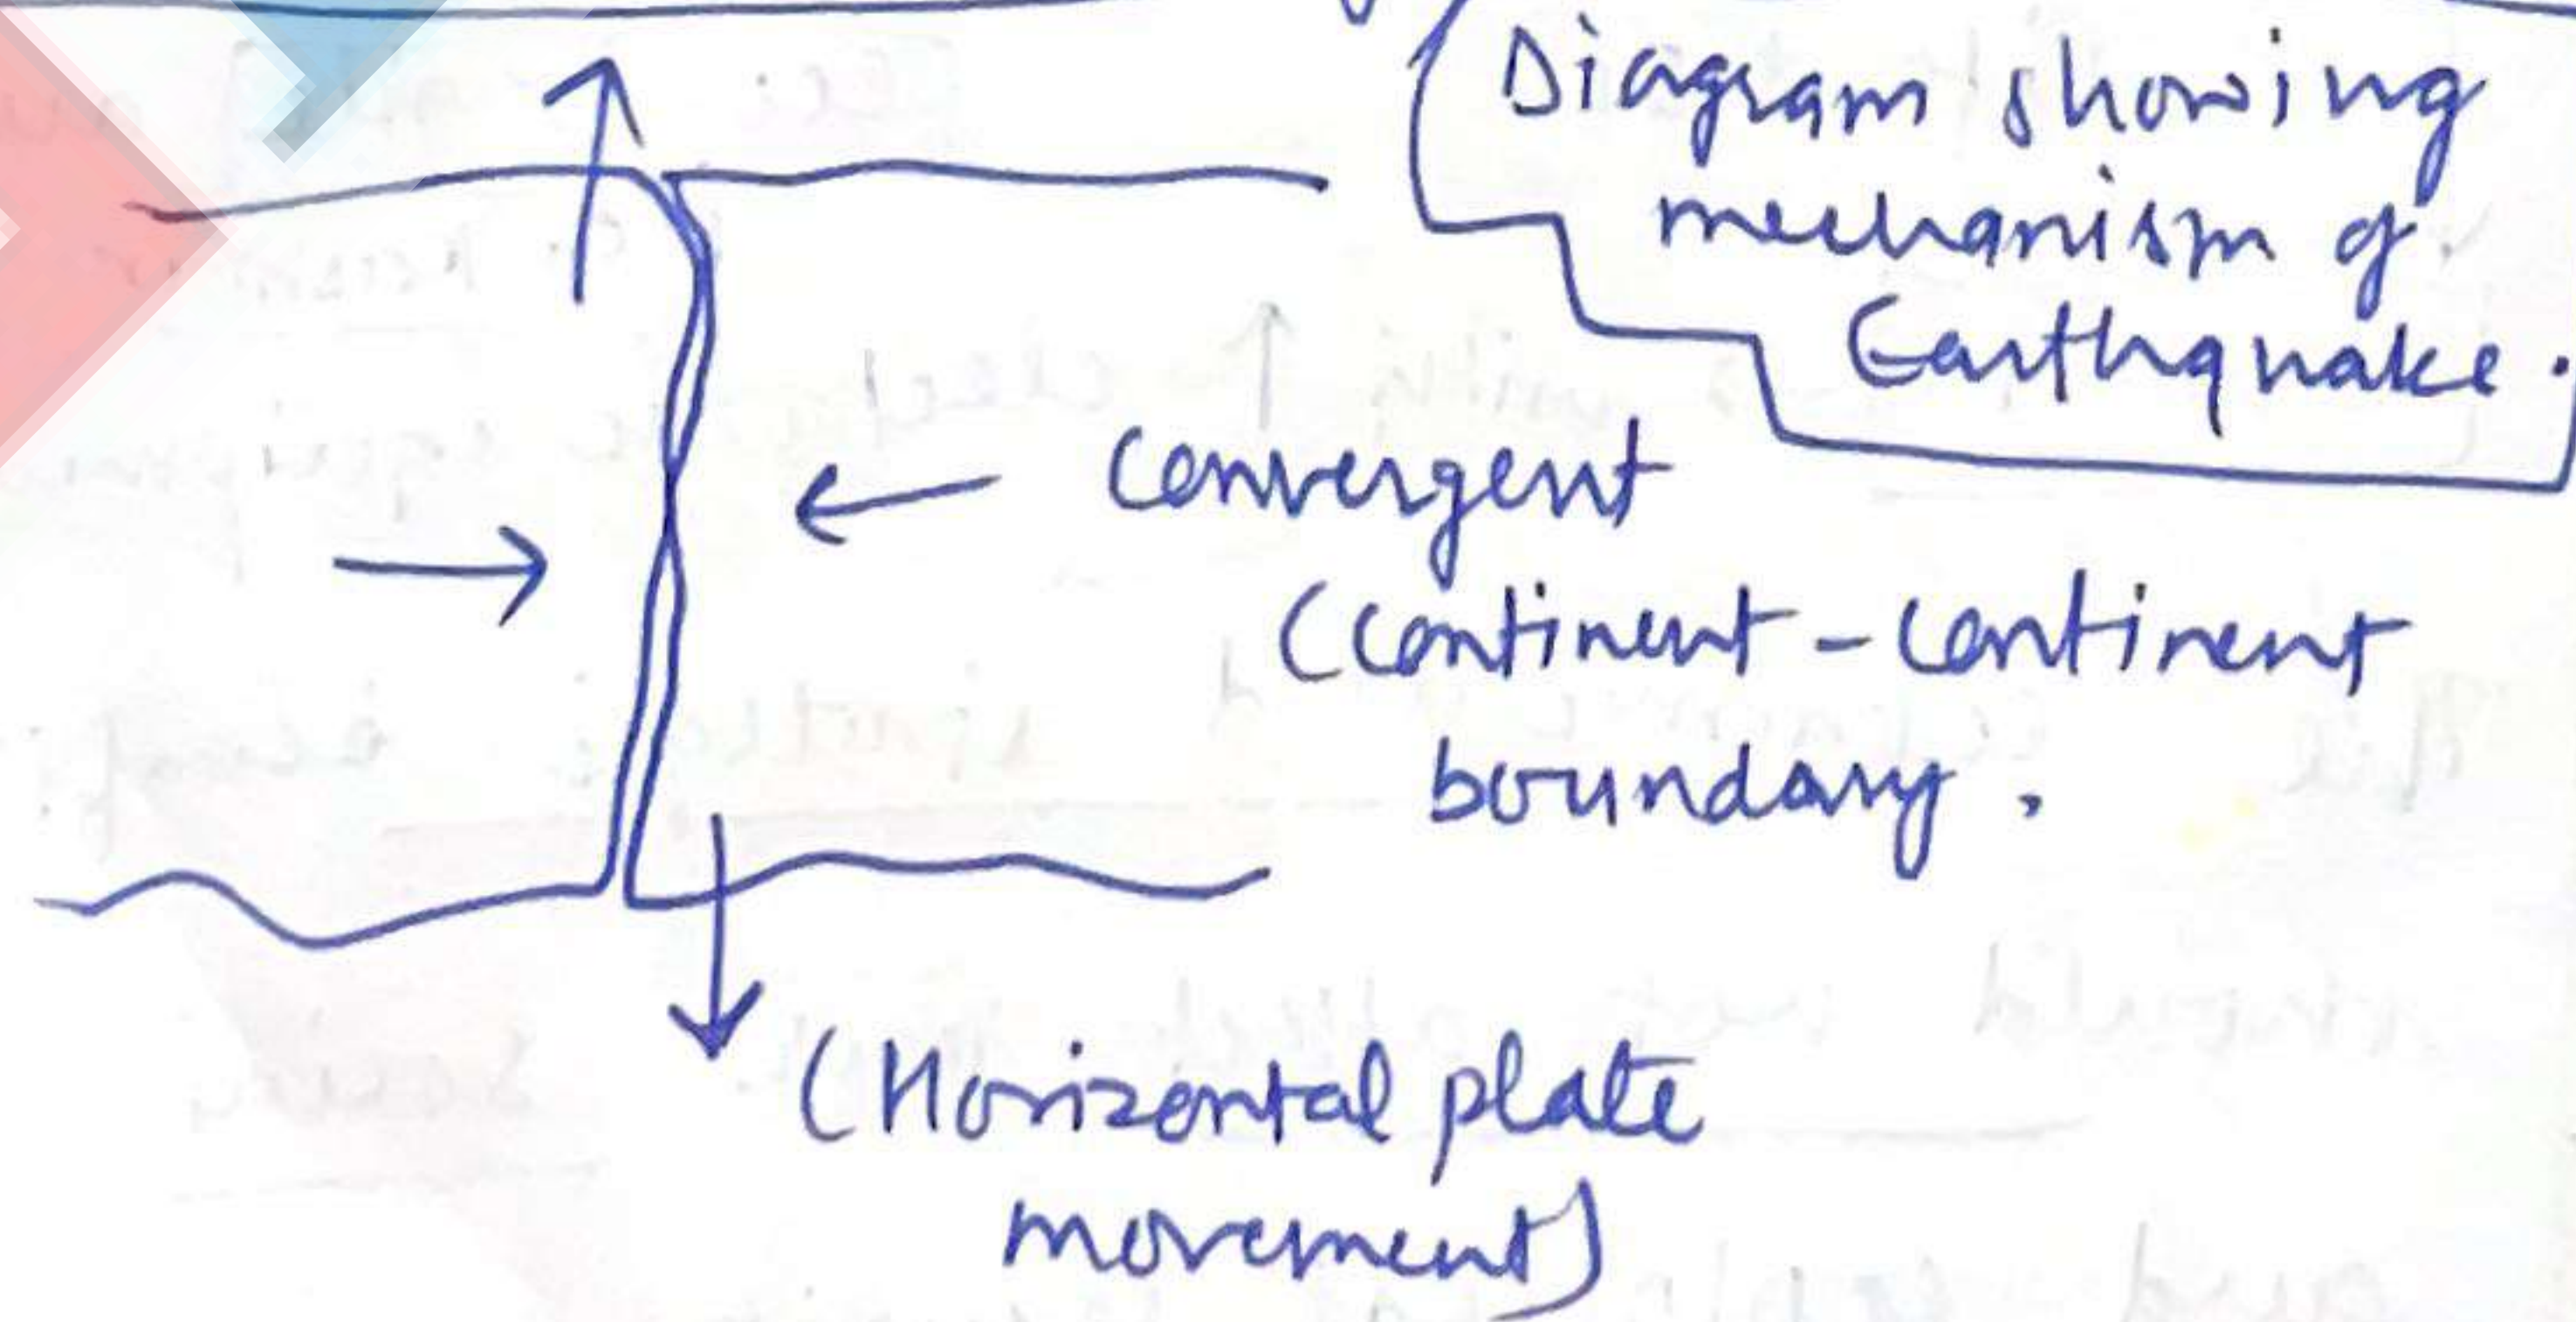 Diagram showing
mechanism of
Earthquake.
Convergent
(Continent - Continent
boundary.
(Horizontal plate
movement)